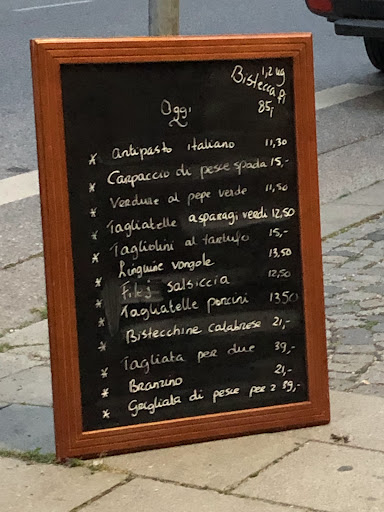 1,2 kg
Bistecca Fi
85,-
Oggi
* antipasto italiano 11,30
* Carpaccio di pesce spada 15,-
* Verdure al pepe verde 11,50
* Tagliatelle asparagi verdi 12,50
* Tagliolini al tartufo 15,-
* Linguine vongole 13,50
* Filej salsiccia 12,50
* Tagliatelle porcini 13,50
* Bistecchine calabrese 21,-
* Tagliata per due 39,-
* Branzino 21,-
* Grigliata di pesce per 2 39,-